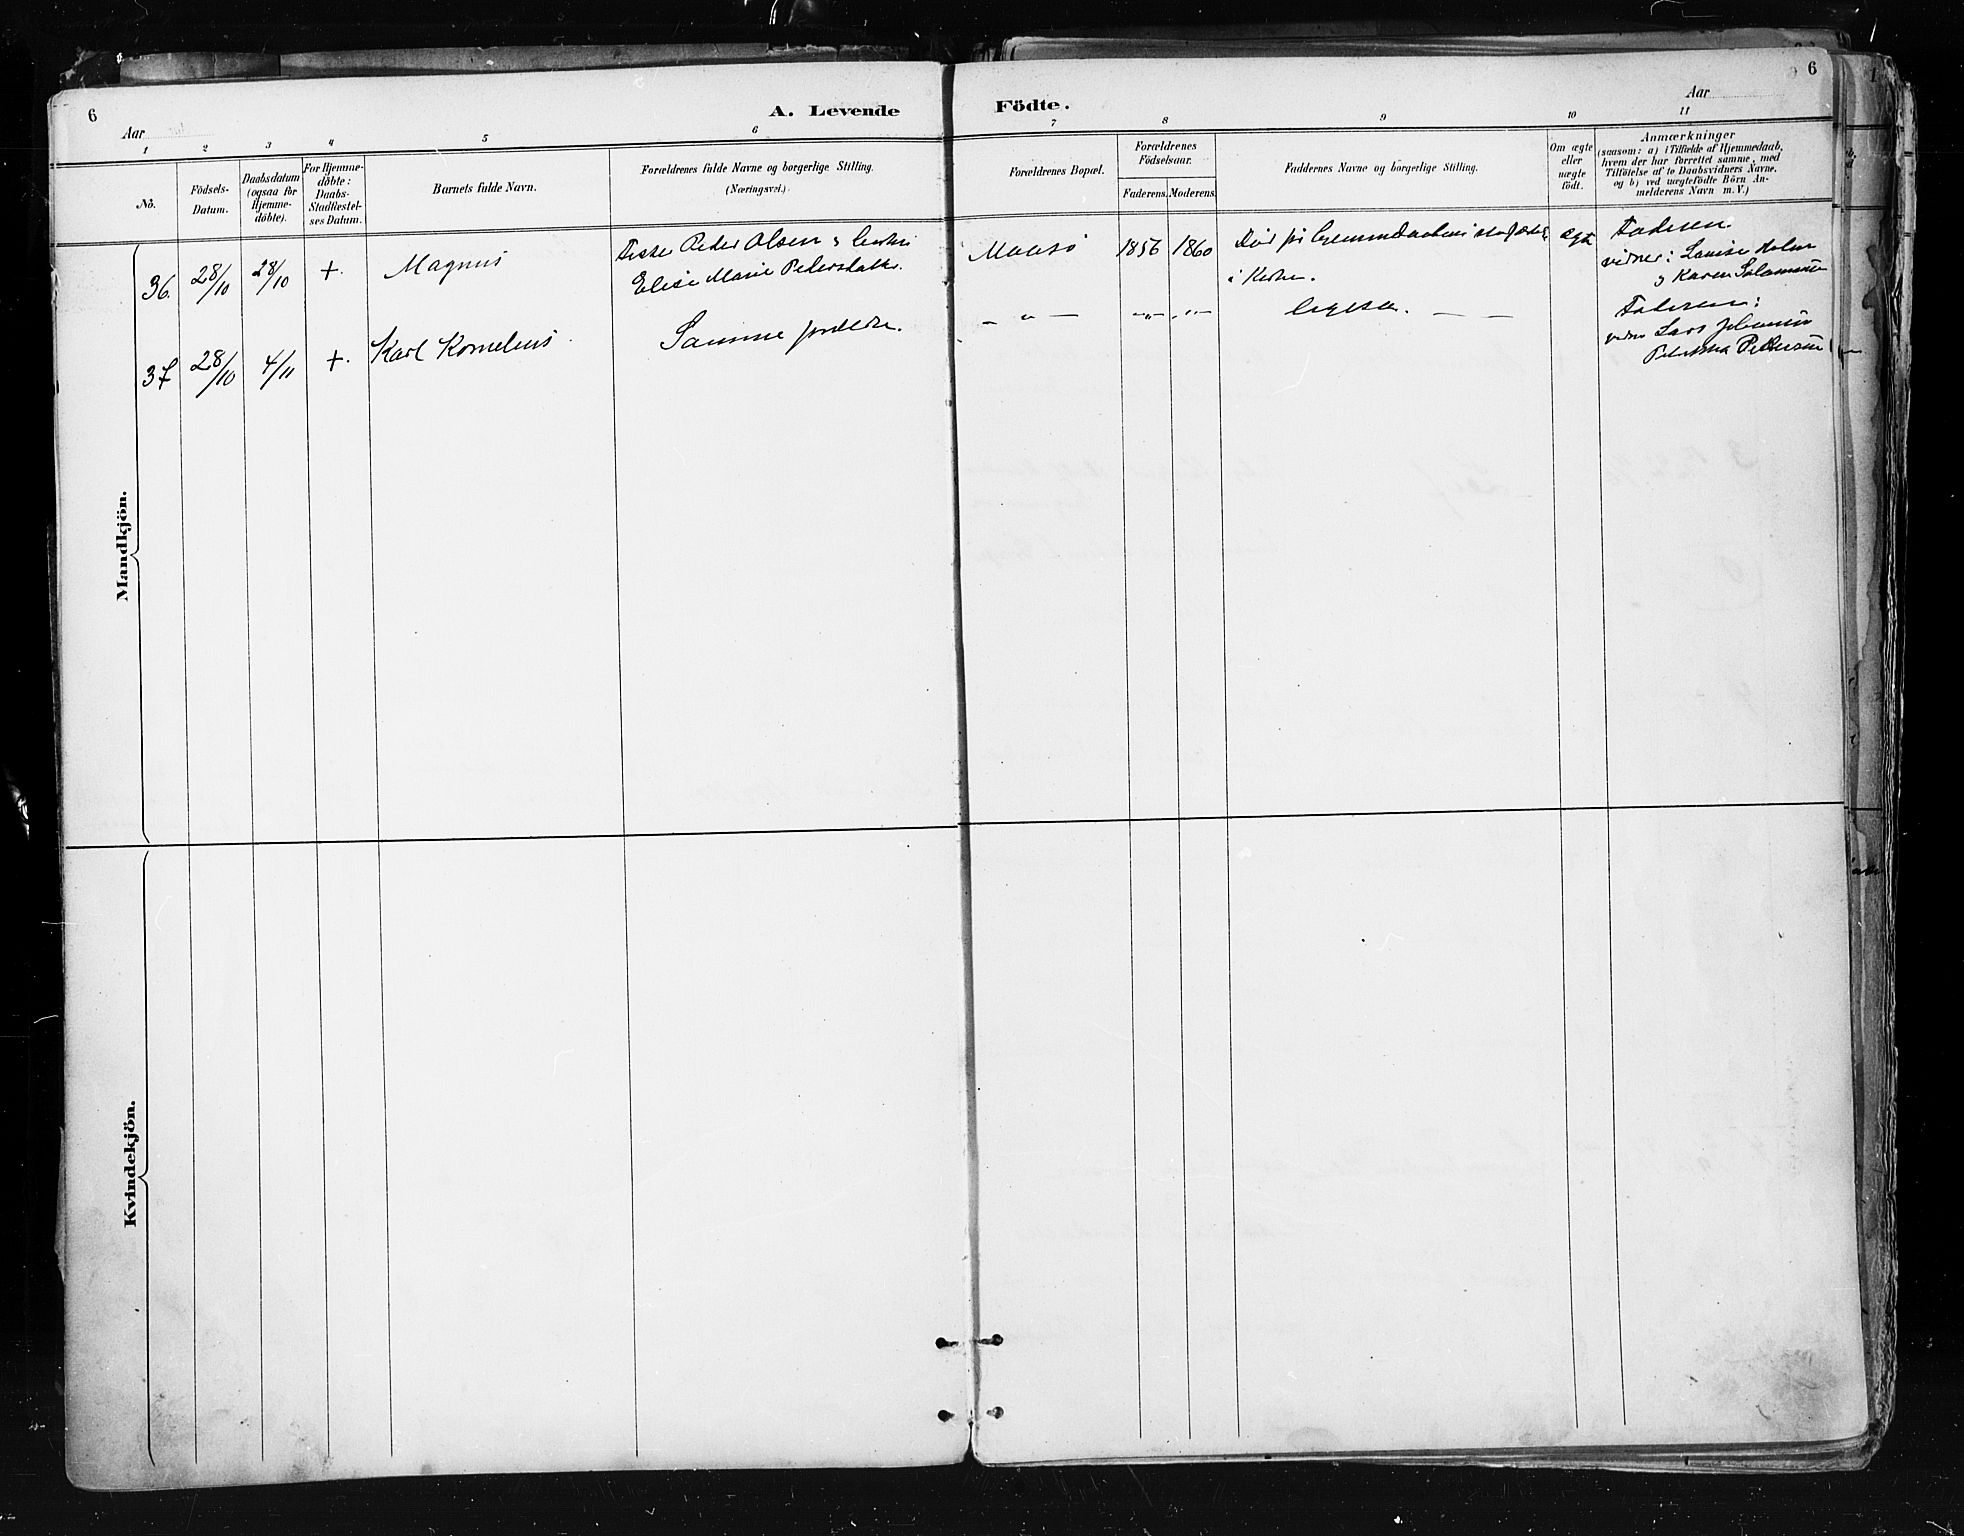 6
A. Levende
Födte.
6
Aar
Aar
1 2 3 4 5 6 7 8 9 10 11
No.
Födsels-
Datum.
Daabsdatum
(ogsaa for
Hjemme-
döbte).
For Hjemme-
döbte:
Daabs-
Stadfestel-
ses Datum.
Barnets fulde Navn.
Forældrenes fulde Navne og borgerlige Stilling.
(Næringsvei.)
Forældrenes Bopæl.
Forældrenes
Födselsaar.
Faderens. Moderens.
Faddernes Navne og borgerlige Stilling.
Om ægte
eller
uægte
födt.
Anmærkninger
(saasom: a) i Tilfælde af Hjemmedaab,
hvem der har forrettet samme, med
Tilföielse af to Daabsvidners Navne.
og b) ved uægtefödte Börn An-
melderens Navn m. V.)
Mandkjön.
36. 28/10 28/10 +. Magnus
Fisker Peder Olsen og
Elise Marie Pedersdatter.
Maasö 1856 1860
Död för Hjemmedaaben
i Kirken.
ægte
Faderen.
vidner: Louise Holm
og Karen Salamonsen
37 28/10 4/11 +. Karl Kornelius
Samme forældre.
— " — —„— „"—
Ligesaa. — —
Faderen:
vidner Lars Johansen
Petrikka Pedersen
Kvindekjön.